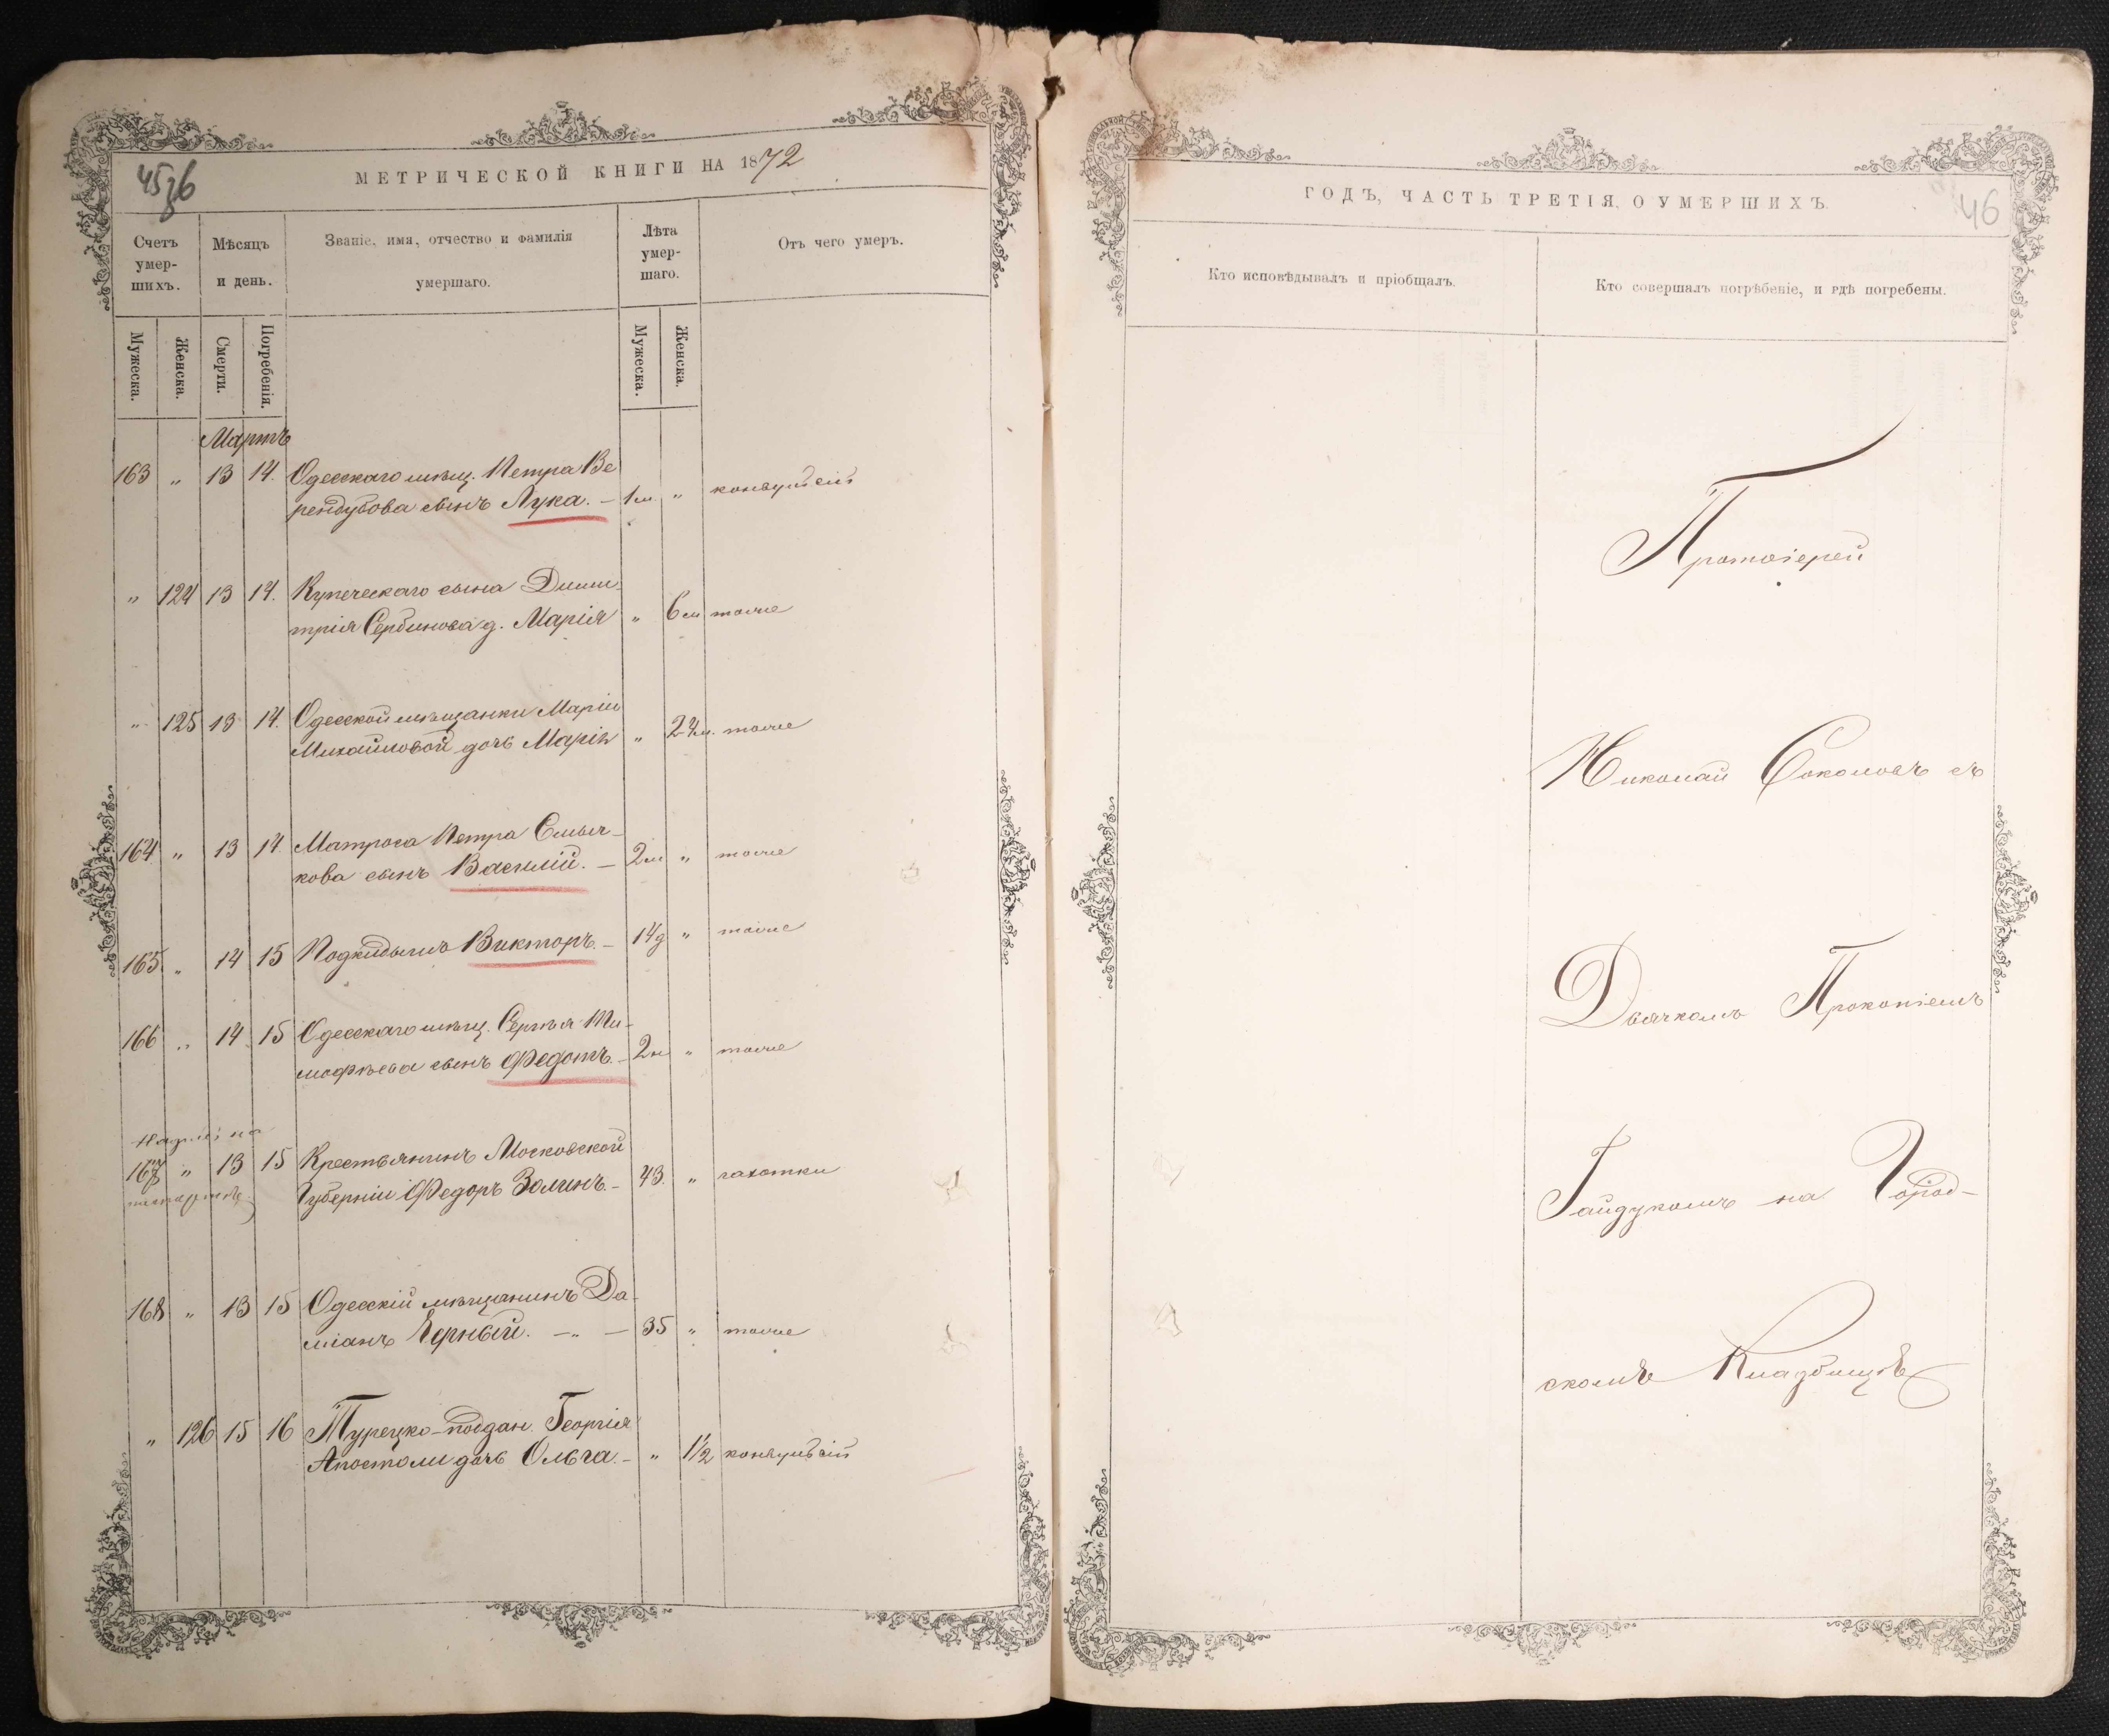 45зб
МЕТРИЧЕСКОЙ КНИГИ НА 1872
Счетъ умер-шихъ.
Мѣсяцъ и день.
Званіе, имя, отчество и фамилія умершаго.
Лѣта умер-шаго.
Отъ чего умеръ.
Мужеска.
Женска.
Смерти.
Погребенія.
Мужеска.
Женска.
Мартъ
163 " 13 14. Одесскаго мѣщ. Петра Ве
рендубова сынъ Лука. — 1м " конвульсій
" 124 13 14. Купеческаго сына Дими-
трія Сербинова д. Марія " 6м тоже
" 125 13 14. Одесской мѣщанки Маріи
Михайловой дочь Марія " 24м. тоже
164 " 13 14 Матроса Петра Смыч-
кова сынъ Василій. — 2м " тоже
165 " 14 15 Подкидышъ Викторъ. — 14д " тоже
166 " 14 15 Одесскаго мѣщ. Сергѣя Ти-
мофѣева сынъ Федотъ. — 2н " тоже
167 " 13 15 Крестьянинъ Московской
Губерніи Федоръ Золинъ. — 43. " чахотки
168 " 13 15 Одесскій мѣщанинъ Да-
міанъ Черный. — " — 35 " тоже
" 126 15 16 Турецко-поддан. Георгія
Апостоли дочь Ольга. — " 1½ конвульсій
ГОДЪ, ЧАСТЬ ТРЕТІЯ, О УМЕРШИХЪ.
46
Кто исповѣдывалъ и пріобщалъ.
Кто совершалъ погрѣбеніе, и гдѣ погребены.
Протоіерей
Николай Соколовъ съ
Дьячкомъ Прокопіемъ
Гайдукомъ на Город-
скомъ Кладбищѣ